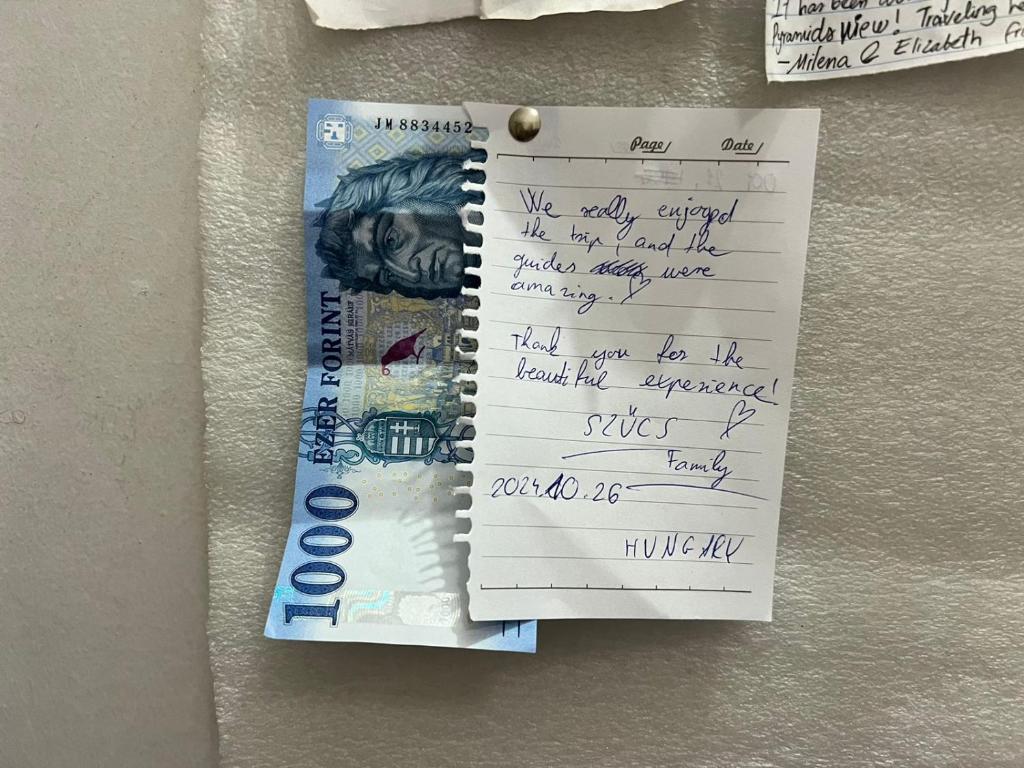 It has been
Pyramids View! Traveling
-Milena & Elizabeth
JM 8834452
EZER FORINT
MÁTYÁS KIRÁLY
1000
Page/ Date/
We really enjoyed
the trip, and the
guides were
amazing. ♡
Thank you for the
beautiful experience!
SZŰCS ♡
Family
2024.10.26
HUNGARY